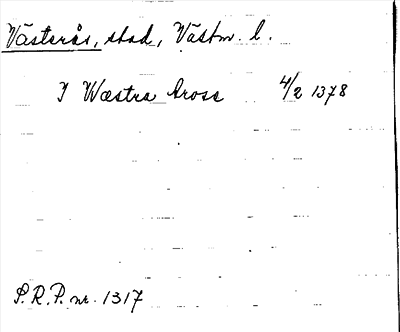 Västerås, stad, Västm. l.
I Wæstra Aross 4/2 1378
S.R.P. nr. 1317